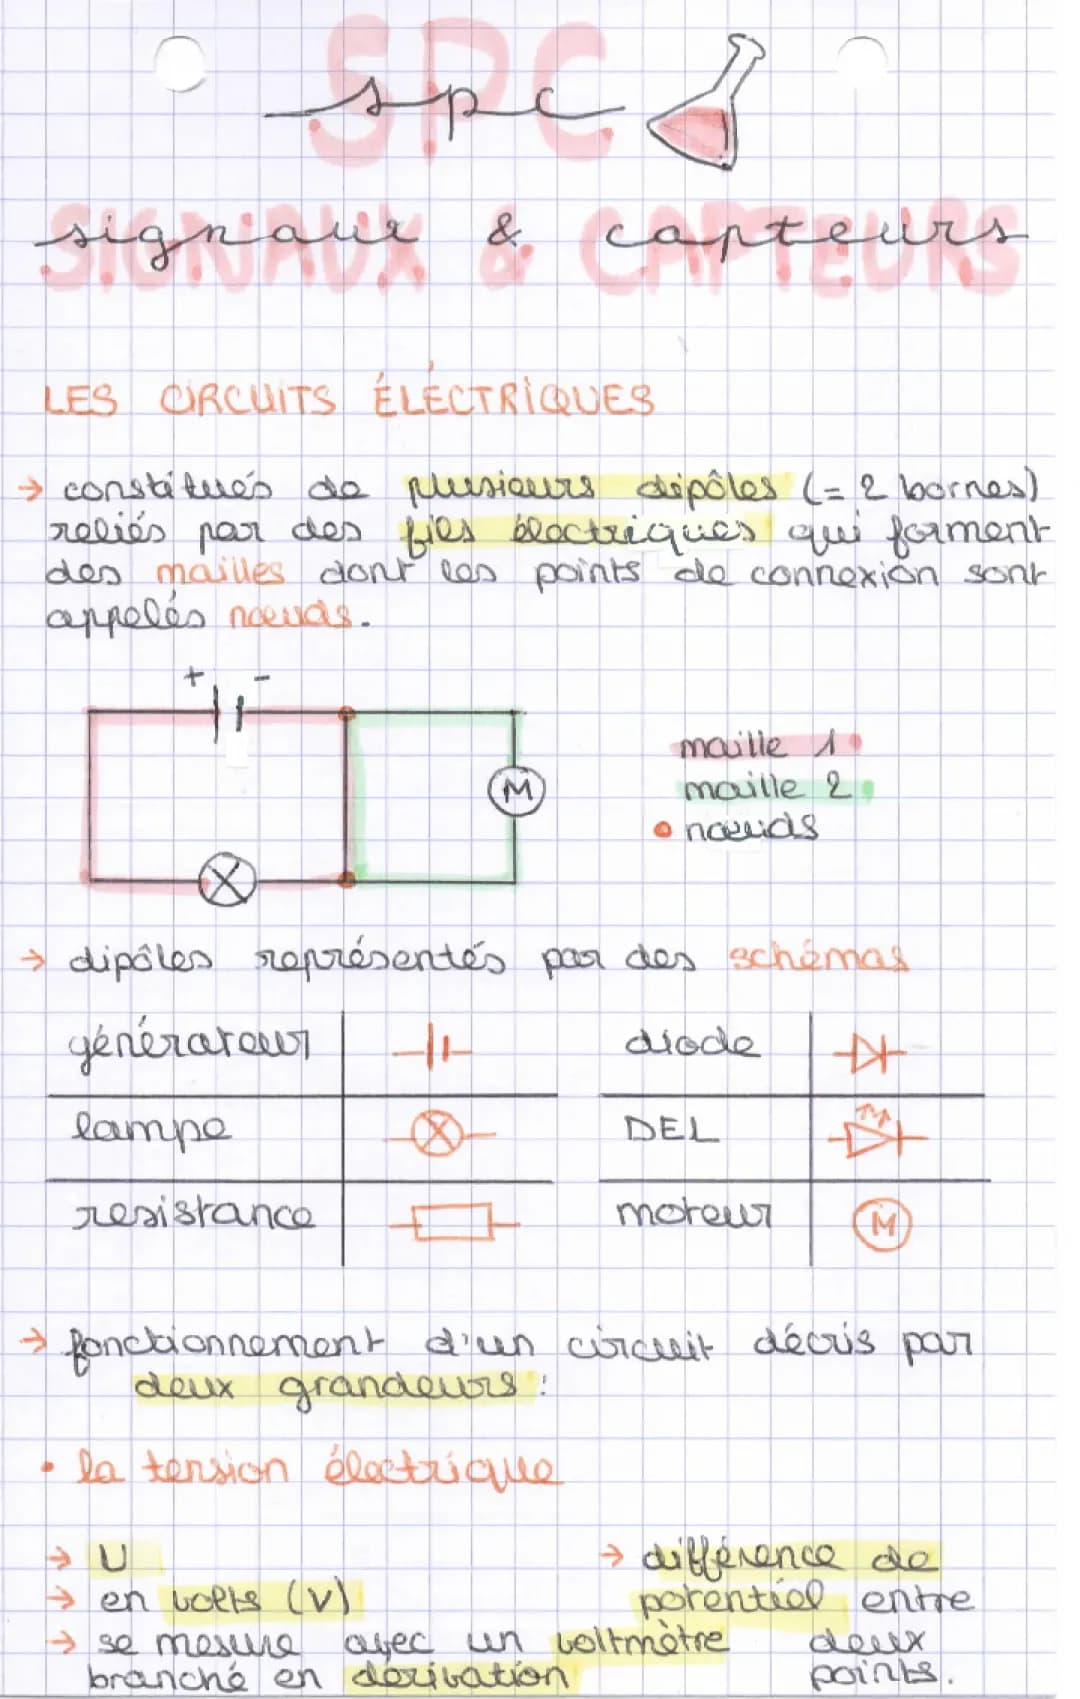 SPC
spc
SIGNAUX & CAPTEURS
signaux & capteurs
LES CIRCUITS ÉLÉCTRIQUES
→ constitués de plusieurs dipôles (= 2 bornes)
reliés par des fils électriques qui forment
des mailles dont les points de connexion sont
appelés nœuds.
+ -
M
maille 1
maille 2
• nœuds
→ dipôles représentés par des schémas
générateur
diode
lampe
DEL
resistance
moteur M
→ fonctionnement d'un circuit décris par
deux grandeurs :
• la tension électrique
→ U
→ en volts (V)
→ se mesure avec un voltmètre
branché en dérivation
→ différence de
potentiel entre
deux
points.